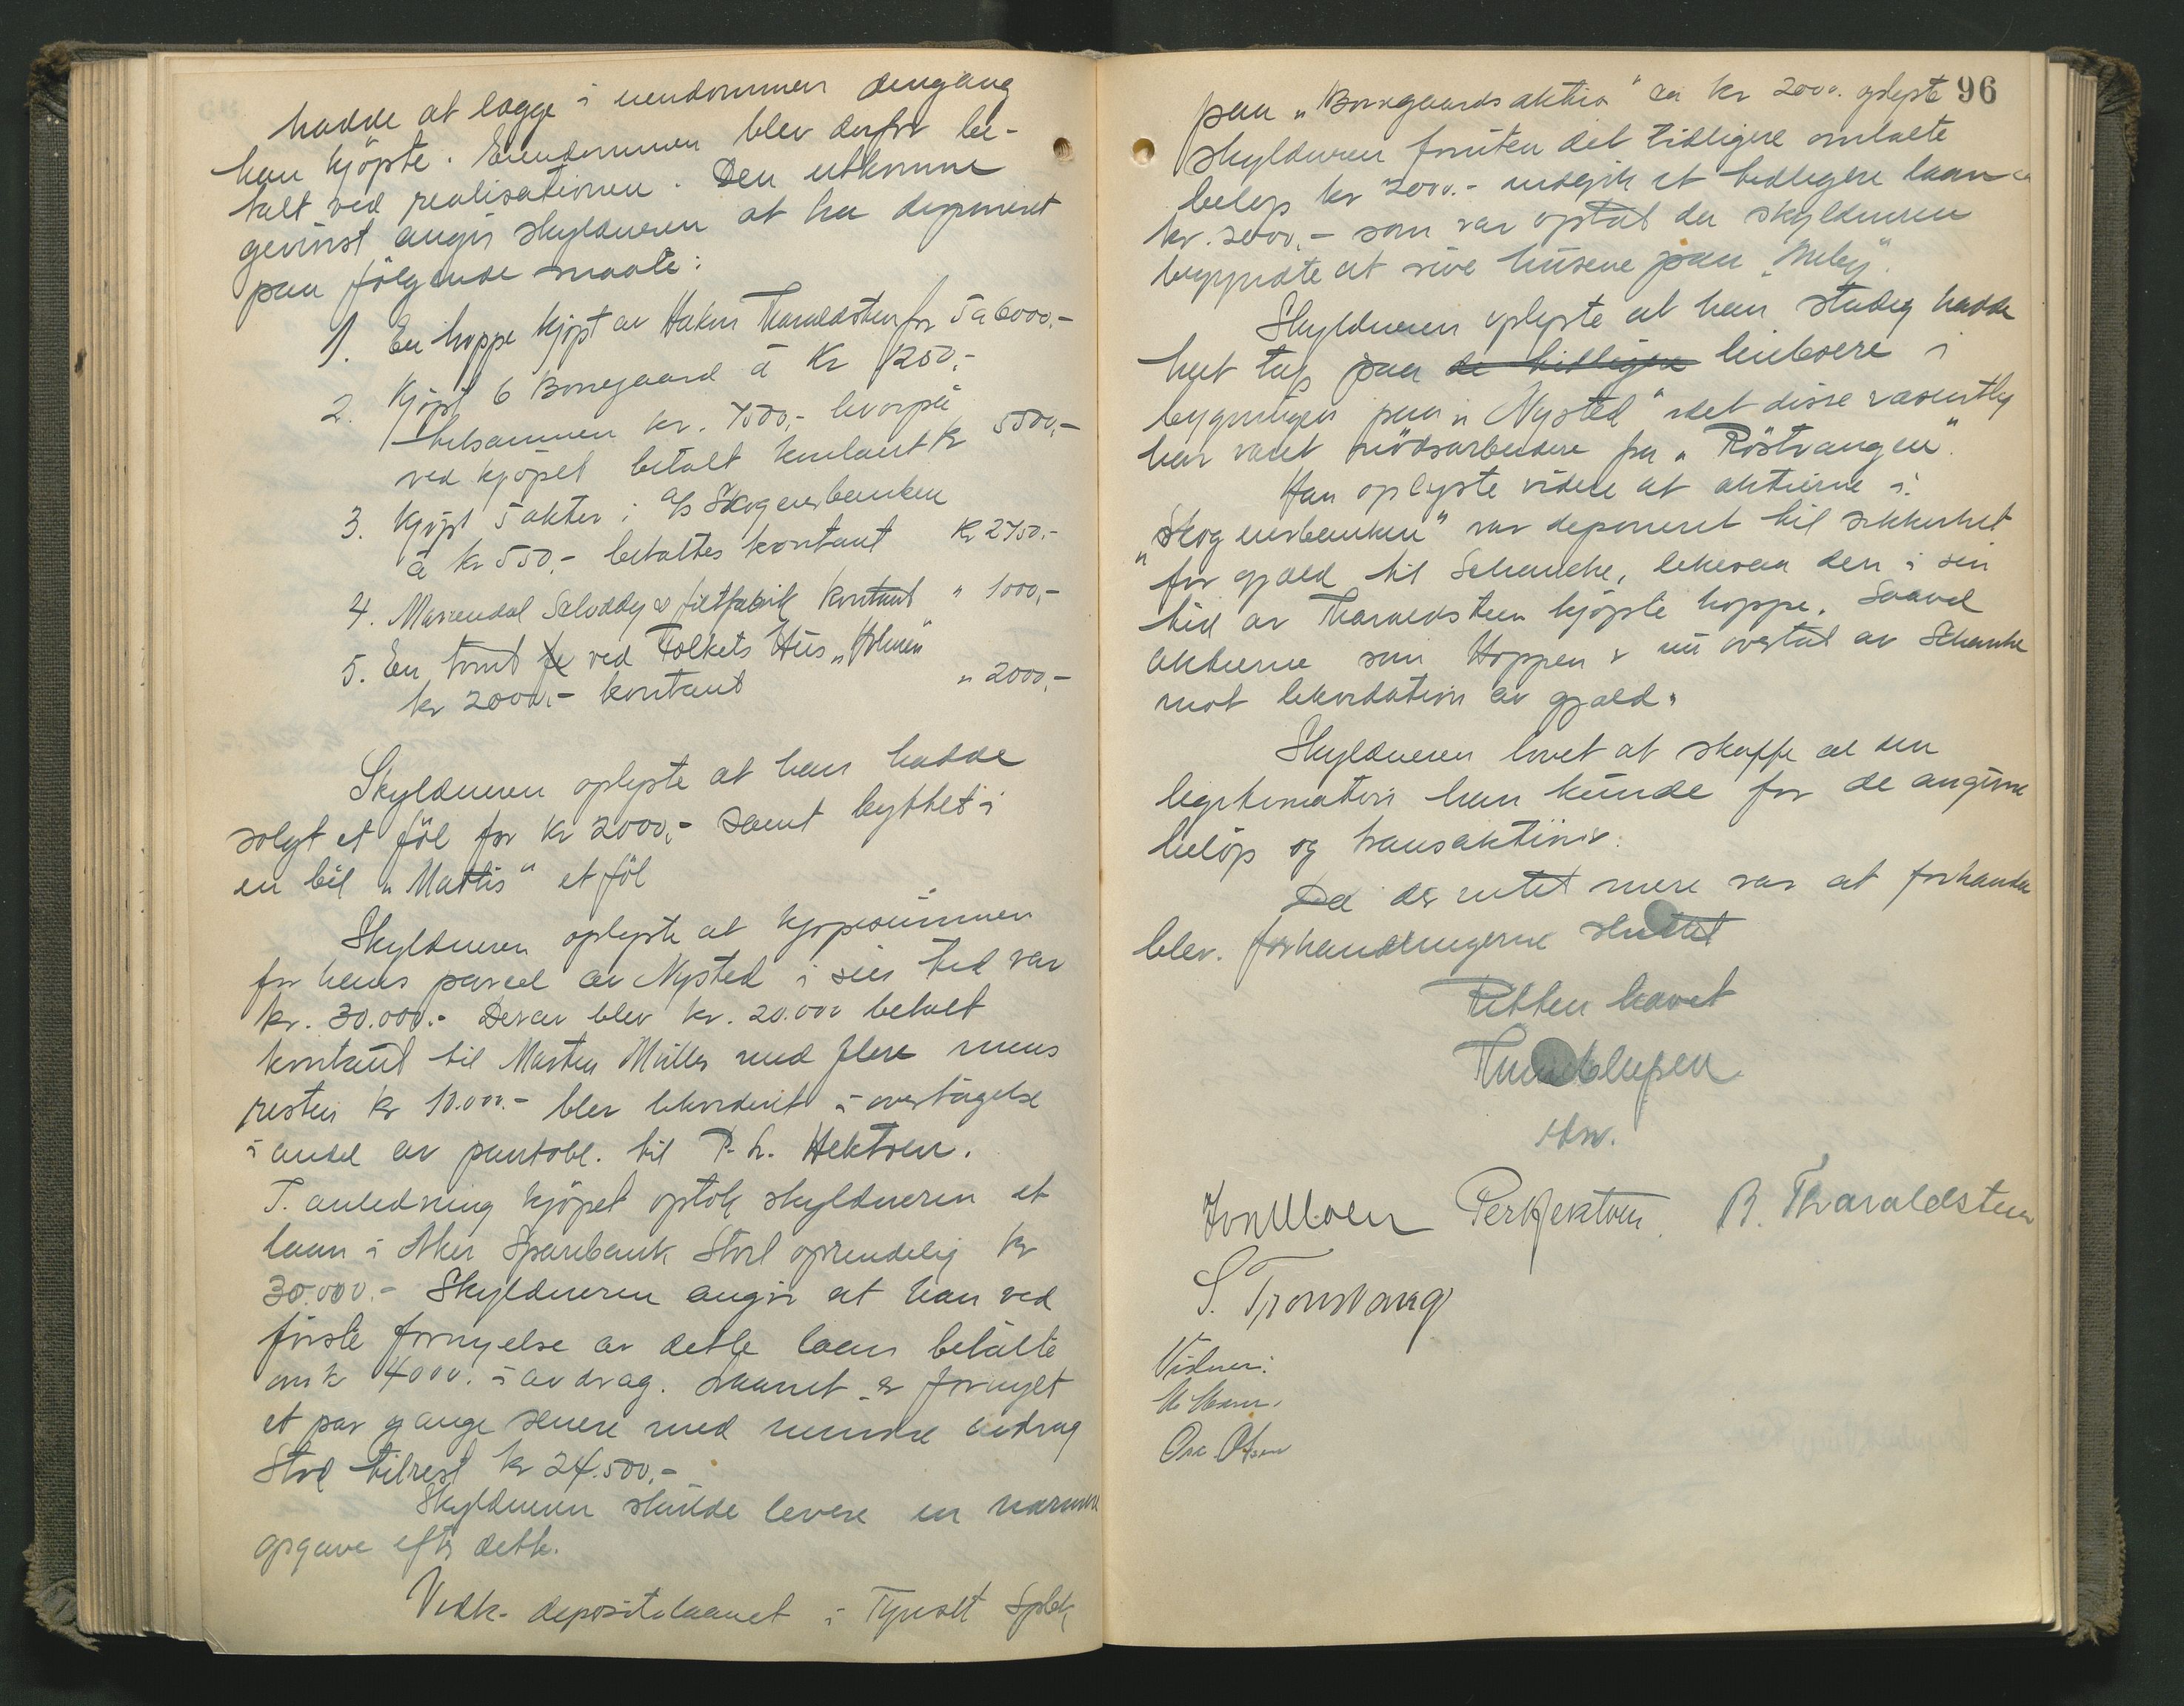 hadde at lægge i eiendommen dengang
han kjöpte. Eiendommen blev derfor be-
talt ved realisationen. Den utkomne
gevinst angir skyldneren at ha disponeret
paa fölgende maate:
1. En hoppe kjöpt av Hakon Tharaldsteen for 5 a 6000,-
2. Kjöpt 6 Borregaard á Kr 1250,-
tilsammen kr. 7500,- hvorpå
ved kjöpet betalt kontant kr 5500,-
3. Kjöpt 5 aktier i A/S Skogeierbanken
á kr 550,- betaltes kontant Kr 2750.-
4. filtfabrik kontant " 1000,-
5. En tomt ved Folkets Hus „Holmen"
kr 2000,- kontant " 2000,-
Skyldneren oplyste at han hadde
solgt et föl for kr 2000,- samt byttet i
en bil „Mathis" et föl
Skyldneren oplyste at kjöpesummen
for hans parcel av Nysted i sin tid var
kr. 30.000.- Derav blev kr. 20.000 betalt
kontant til Martin Müller med flere mens
resten kr 10.000.- blev likvideret i overtagelse
i andel av pantobl. til P. L. Hektoen.
I anledning kjöpet optok skyldneren et
laan i Aker Sparebank Stort oprindelig kr
30.000.- Skyldneren angir at han ved
förste fornyelse av dette laan betalte
om kr 4000. i avdrag. Laanet er fornyet
et par gange senere med mindre avdrag
Stod tilrest kr 24.500.-
Skyldneren skulde levere en nærmere
opgave efter dette.
Vedk. depositolaanet i Tynset Spbk
96
paa „Borregaards aktier" ca kr 2000. oplyste
skyldneren foruten det tidligere omtalte
belöp kr 2000.- indgik et tidligere laan ca
kr. 2000,- som var optat da skyldneren
begyndte at rive husene paa „Meby".
Skyldneren oplyste at han stadig hadde
hat tap paa de tidligere leieboere i
bygningen paa „Nysted" idet disse væsentlig
har været nödsarbeidere fra „Röstvangen".
Han oplyste videre at aktierne i
„Skogeierbanken" var deponeret til sikkerhet
for gjæld til Schanche, likesaa den i sin
tid av Tharaldsteen kjöpte hoppe. Saavel
aktierne som Hoppen er nu overtat av Schanche
mot likvidation av gjæld.
Skyldneren lovet at skaffe al den
legitimation han kunde for de angivne
belöp og transaktioner.
Da der intet mere var at forhandle
blev forhandlingerne sluttet
Retten hævet
Per Hektoen. R. Tharaldsteen
S. Tronsvang
Vidner:
Olsen